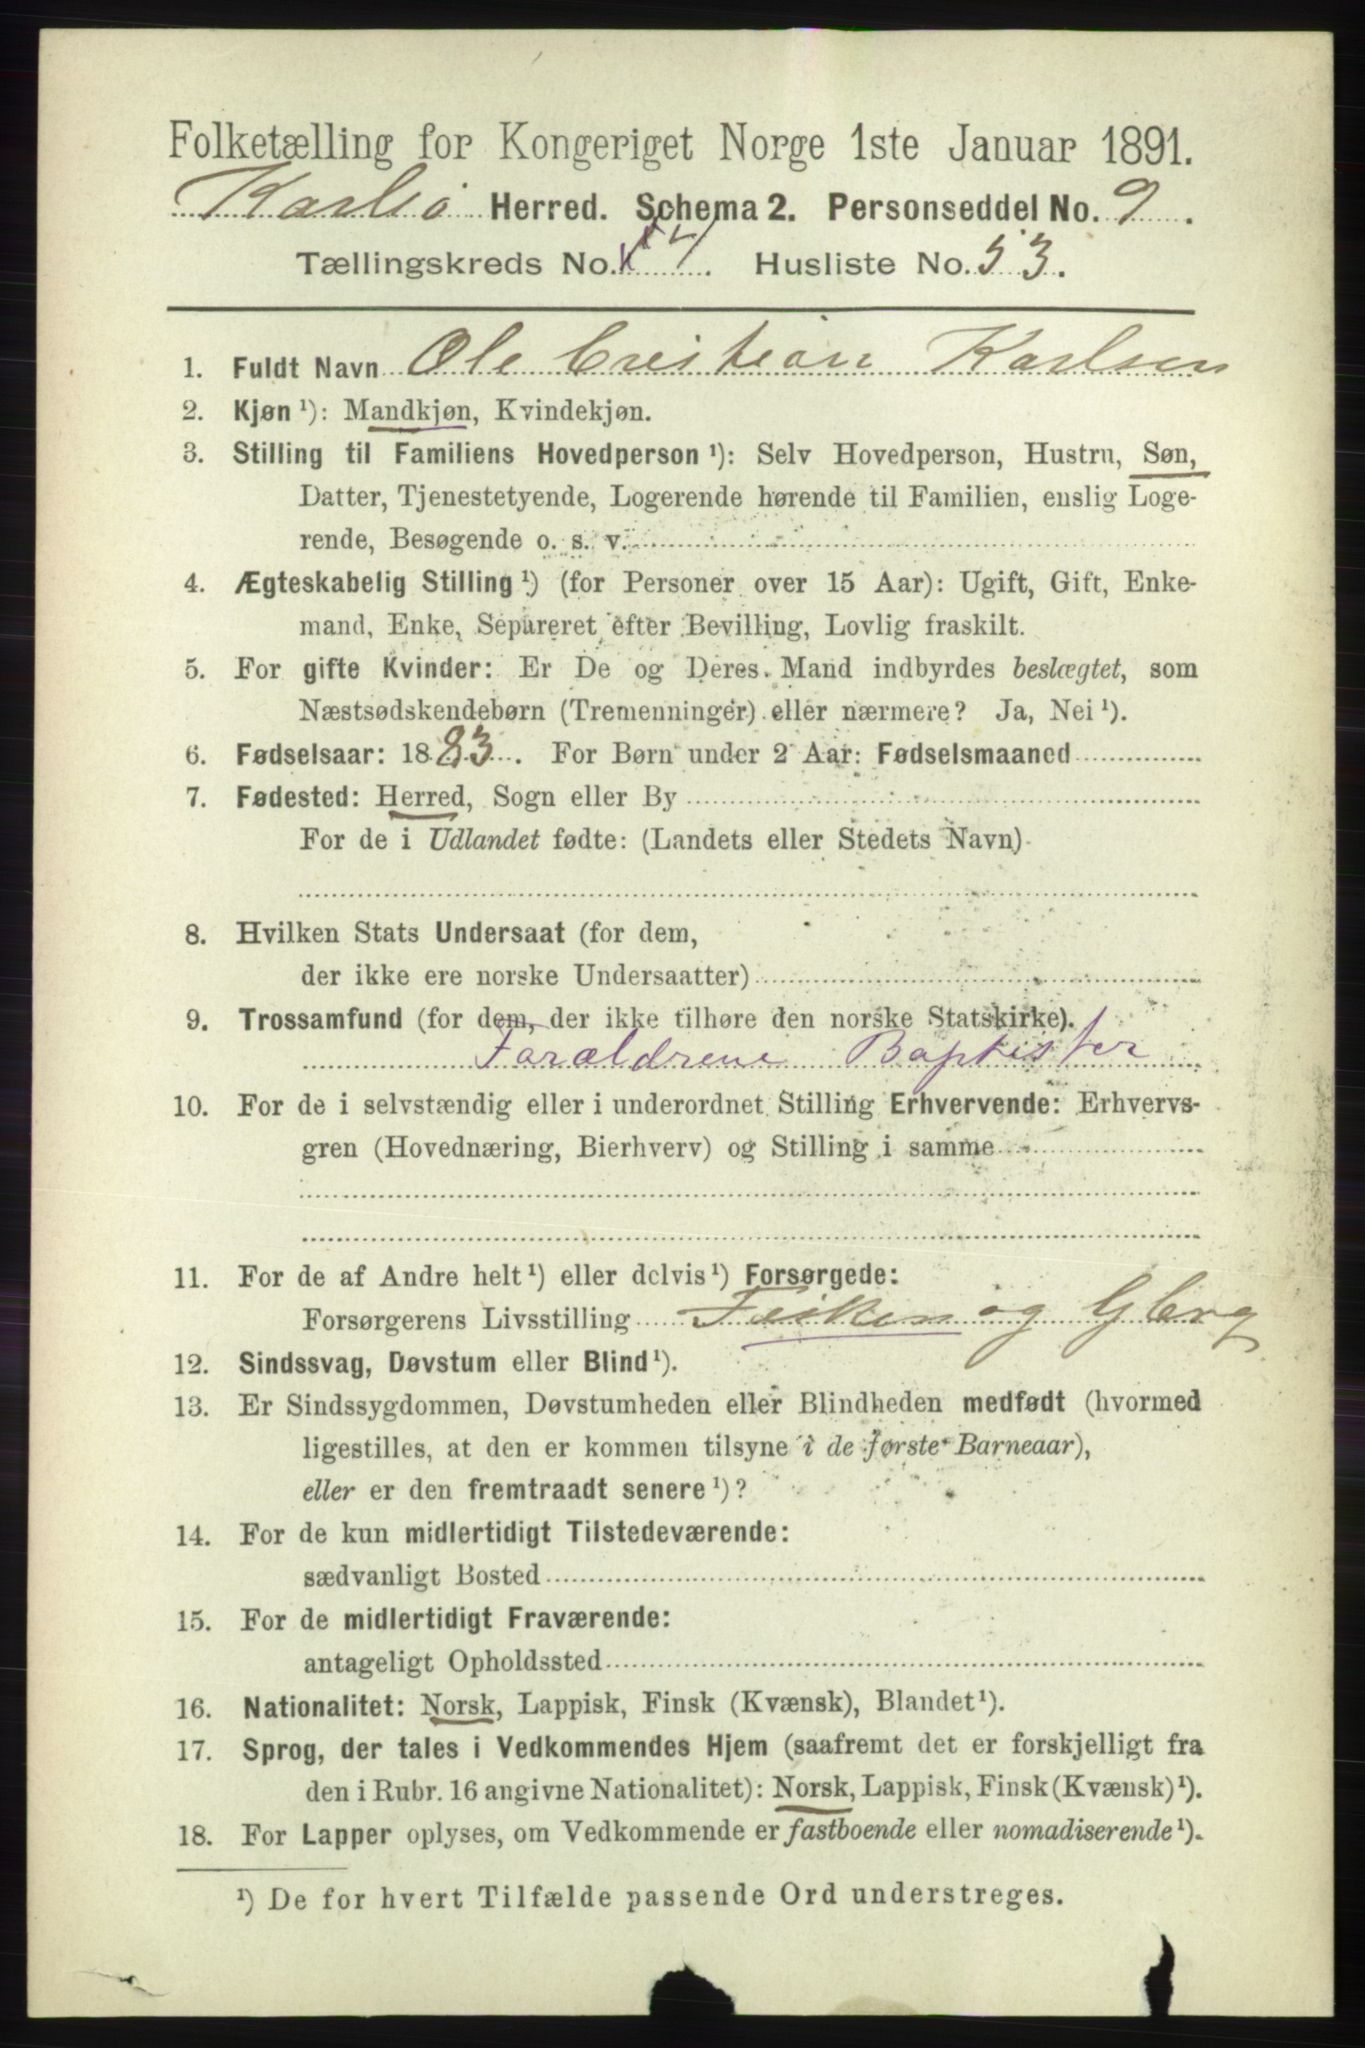 Folketælling for Kongeriget Norge 1ste Januar 1891.
Karlsø Herred. Schema 2. Personseddel No. 9.
Tællingskreds No. 4. Husliste No. 53.
1. Fuldt Navn Ole Cristian Karlsen
2. Kjøn ¹): Mandkjøn, Kvindekjøn.
3. Stilling til Familiens Hovedperson ¹): Selv Hovedperson, Hustru, Søn,
Datter, Tjenestetyende, Logerende hørende til Familien, enslig Loge-
rende, Besøgende o. s. v.
4. Ægteskabelig Stilling ¹) (for Personer over 15 Aar): Ugift, Gift, Enke-
mand, Enke, Separeret efter Bevilling, Lovlig fraskilt.
5. For gifte Kvinder: Er De og Deres Mand indbyrdes beslægtet, som
Næstsødskendebørn (Tremenninger) eller nærmere? Ja, Nei ¹).
6. Fødselsaar: 1883. For Børn under 2 Aar: Fødselsmaaned
7. Fødested: Herred, Sogn eller By
For de i Udlandet fødte: (Landets eller Stedets Navn)
8. Hvilken Stats Undersaat (for dem,
der ikke ere norske Undersaatter)
9. Trossamfund (for dem, der ikke tilhøre den norske Statskirke).
Forældrene Baptister
10. For de i selvstændig eller i underordnet Stilling Erhvervende: Erhvervs-
gren (Hovednæring, Bierhverv) og Stilling i samme
11. For de af Andre helt ¹) eller delvis ¹) Forsørgede:
Forsørgerens Livsstilling Fisker og Gbrg
12. Sindssvag, Døvstum eller Blind ¹).
13. Er Sindssygdommen, Døvstumheden eller Blindheden medfødt (hvormed
ligestilles, at den er kommen tilsyne i de første Barneaar),
eller er den fremtraadt senere ¹)?
14. For de kun midlertidigt Tilstedeværende:
sædvanligt Bosted
15. For de midlertidigt Fraværende:
antageligt Opholdssted
16. Nationalitet: Norsk, Lappisk, Finsk (Kvænsk), Blandet ¹).
17. Sprog, der tales i Vedkommendes Hjem (saafremt det er forskjelligt fra
den i Rubr. 16 angivne Nationalitet): Norsk, Lappisk, Finsk (Kvænsk) ¹).
18. For Lapper oplyses, om Vedkommende er fastboende eller nomadiserende ¹).
¹) De for hvert Tilfælde passende Ord understreges.